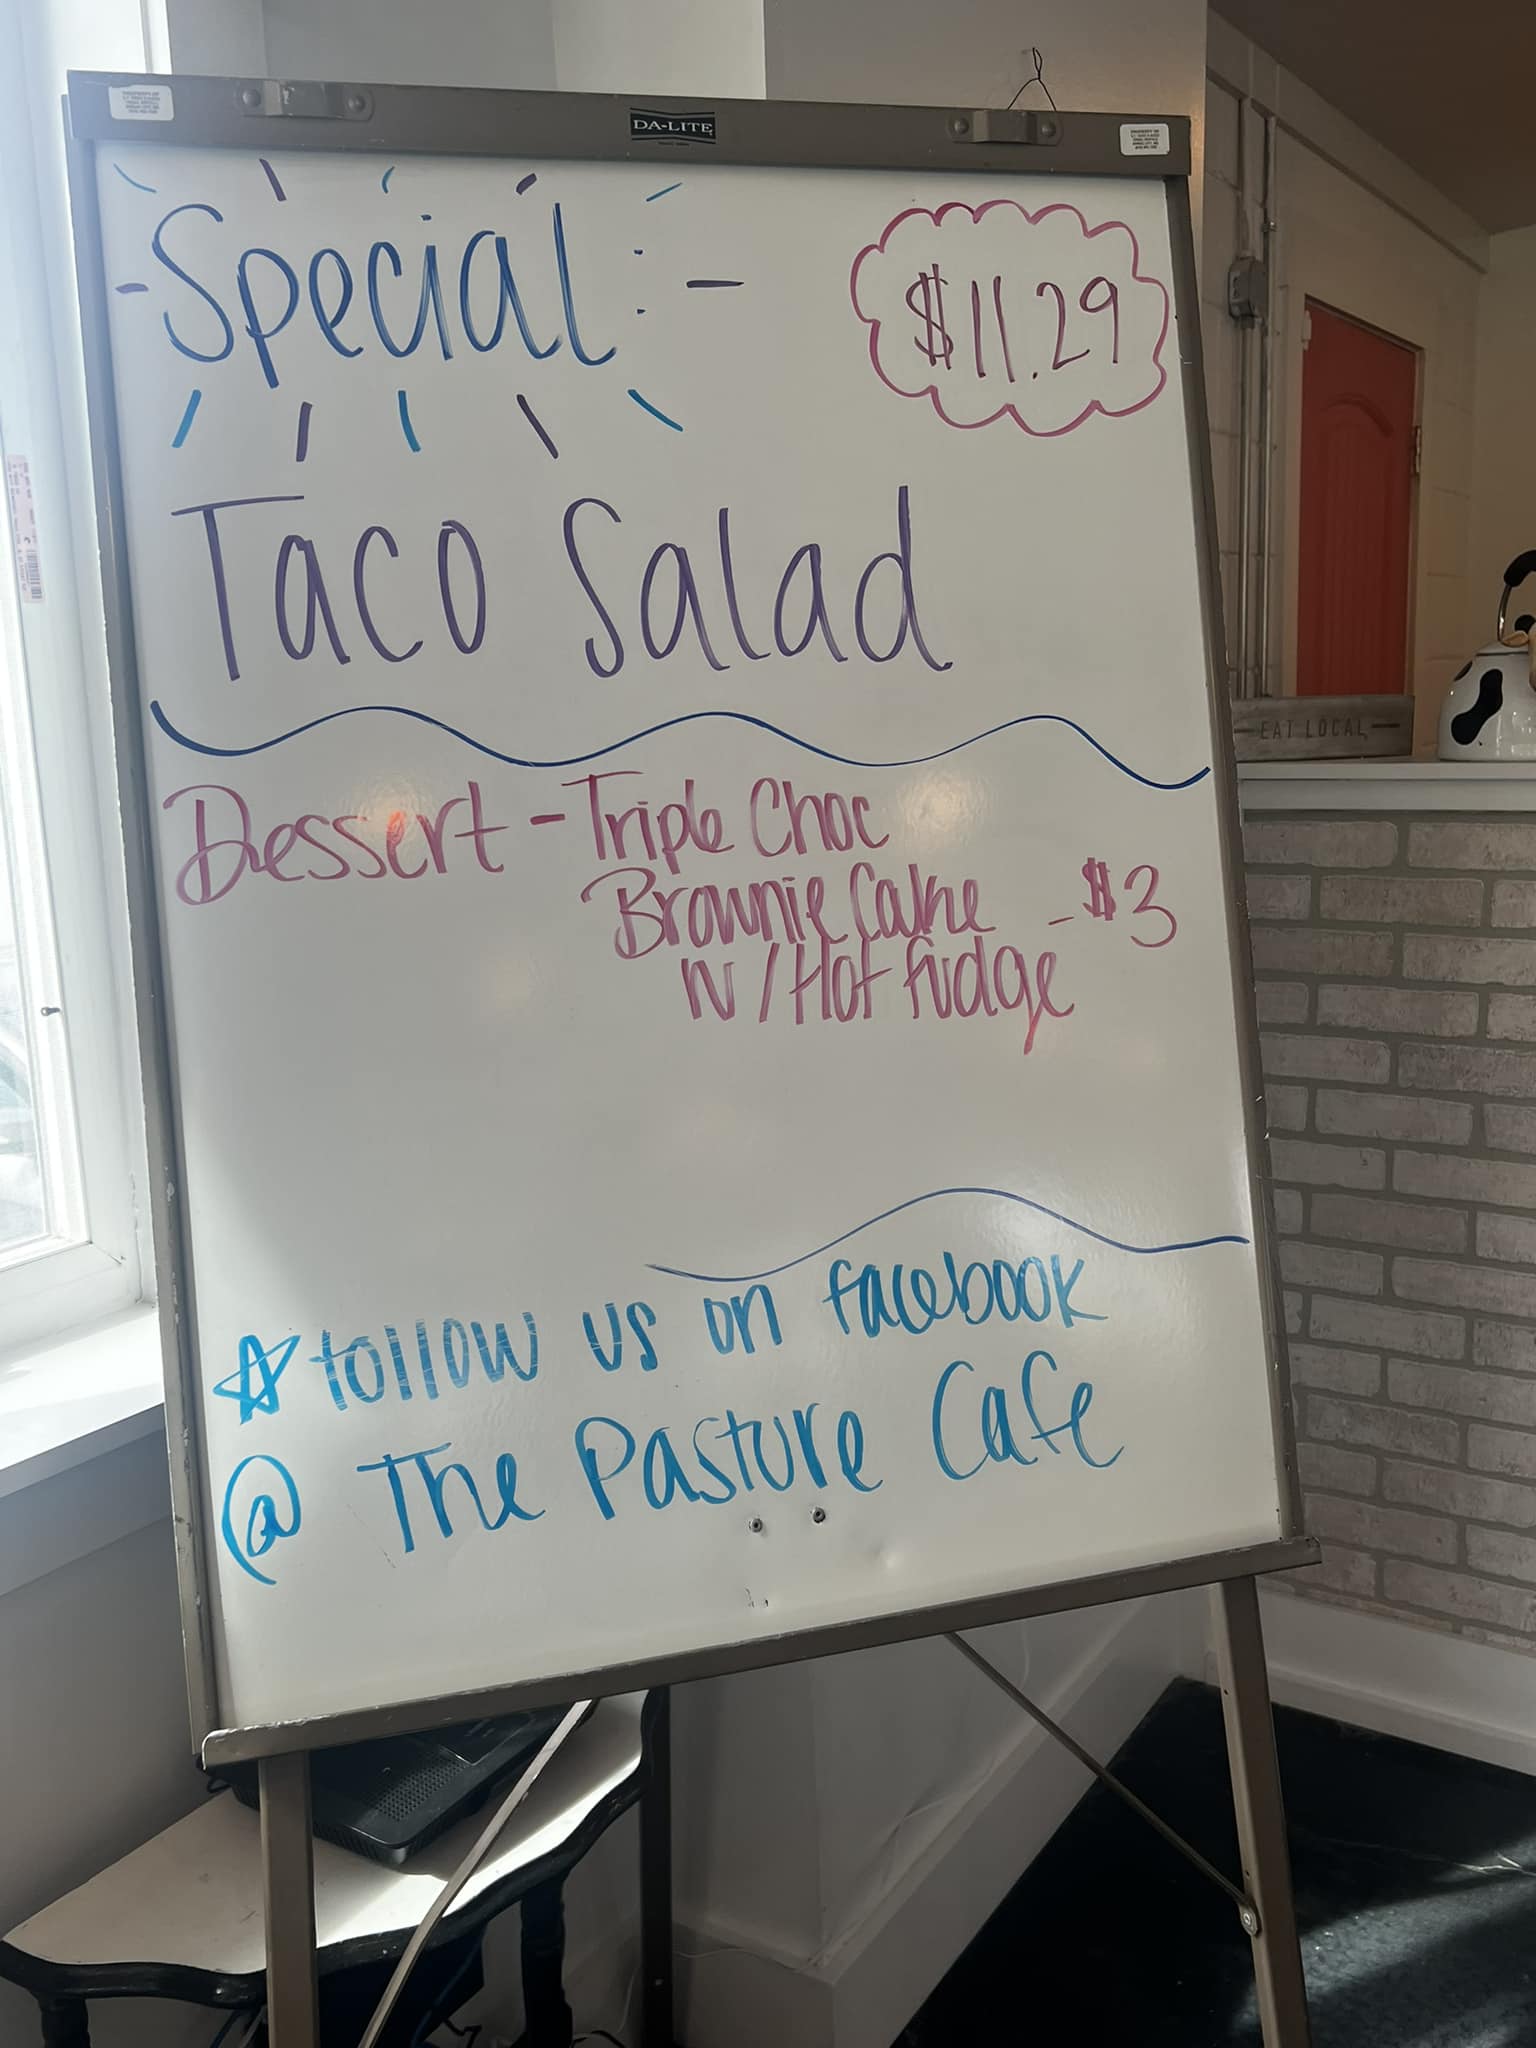 DA-LITE
Special:
$11.29
Taco Salad
Dessert - Triple Choc
Brownie Cake - $3
w/ Hot fudge
follow us on facebook
@ The Pasture Cafe
EAT LOCAL